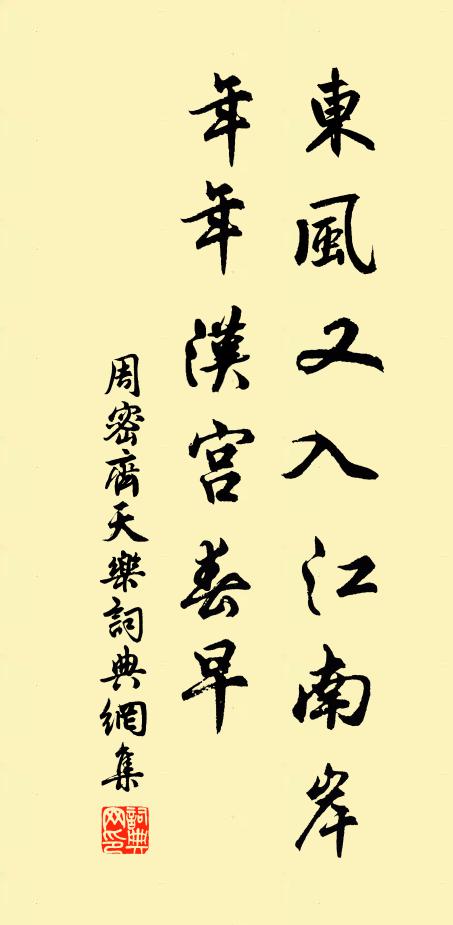 東風又入江南岸
年年漢宮春早
周密齊天樂詞典網集
詞典网印